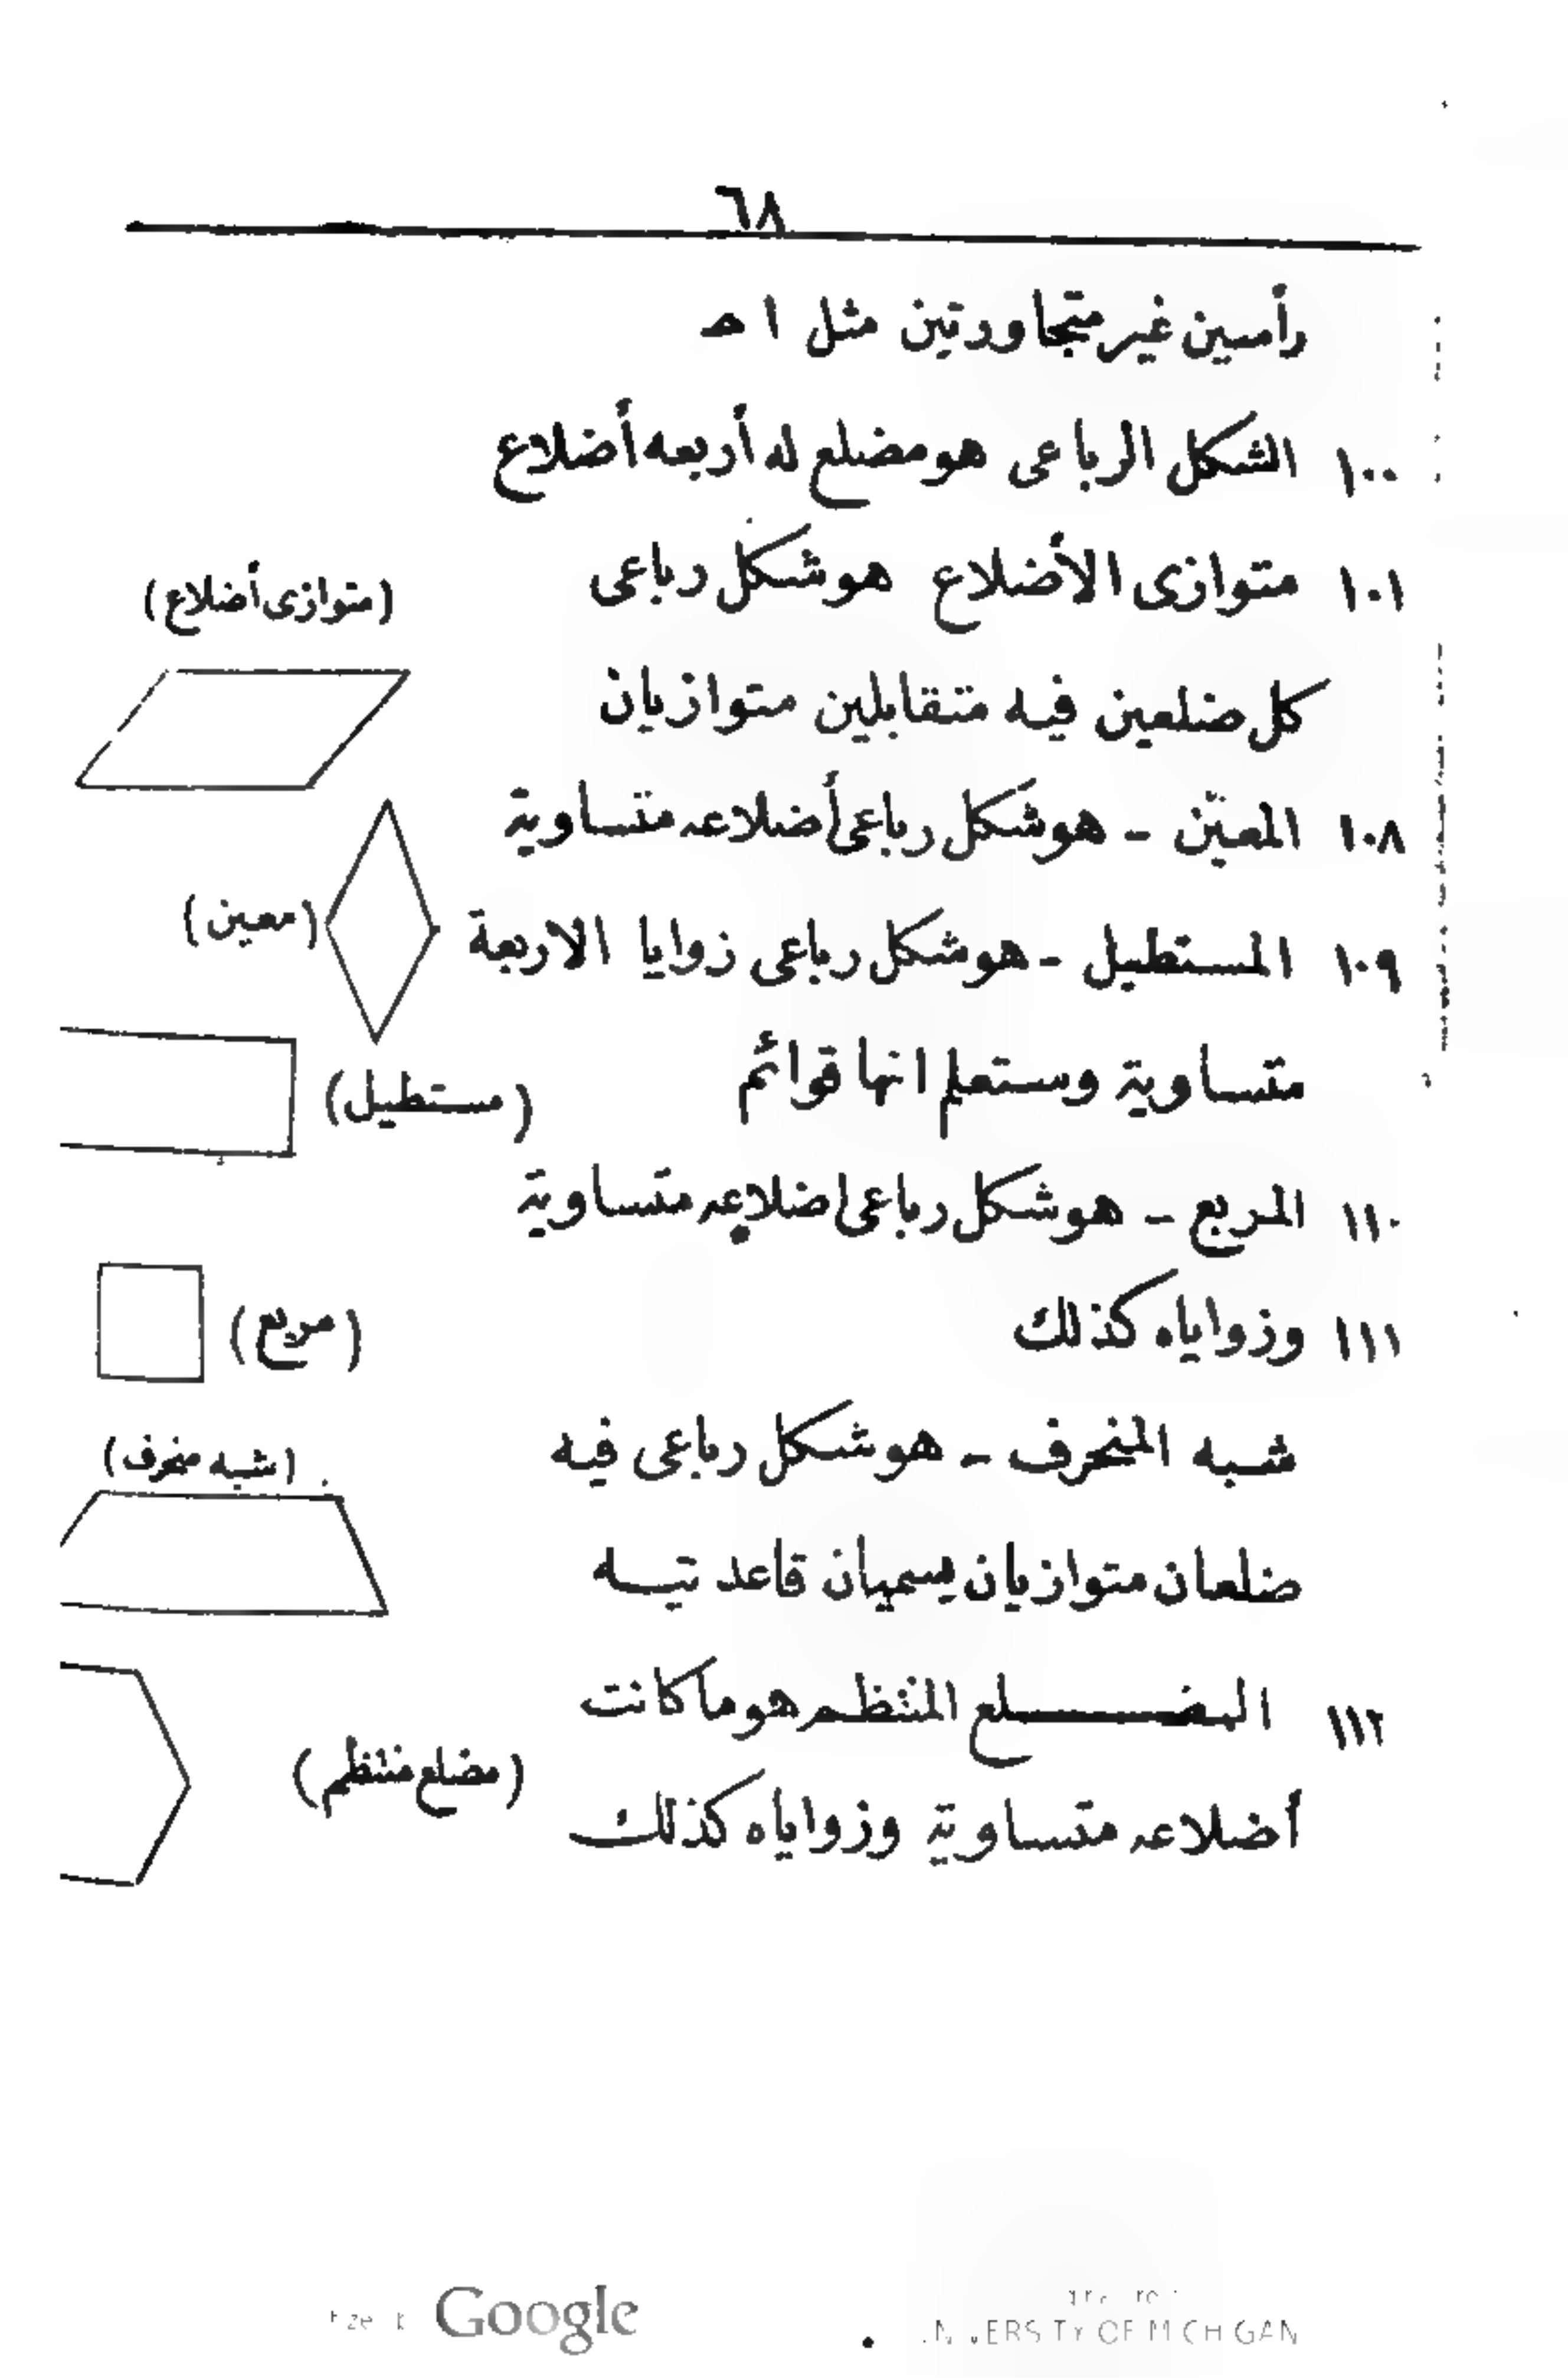 ٦٨
رأسين غير متجاورتين مثل ا ھ
١٠٠ الشكل الرباعى هو مضلع له أربعه أضلاع
١٠١ متوازى الأضلاع هو شكل رباعى
(متوازى أضلاع)
كل ضلعين فيه متقابلين متوازيان
١٠٨ المعيّن - هو شكل رباعى أضلاعه متساوية
(معين)
١٠٩ المستطيل - هو شكل رباعى زوايا الاربعة
متساوية وستعلم انها قوائم
(مستطيل)
١١٠ المربع - هو شكل رباعى اضلاعه متساوية
١١١ وزواياه كذلك
(مربع)
شبه المنحرف - هو شكل رباعى فيه
(شبه منحرف)
ضلعان متوازيان يسميان قاعدتيه
١١٢ المضلع المنتظم هو ما كانت
(مضلع منتظم)
أضلاعه متساوية وزواياه كذلك
Google
UNIVERSITY OF MICHIGAN